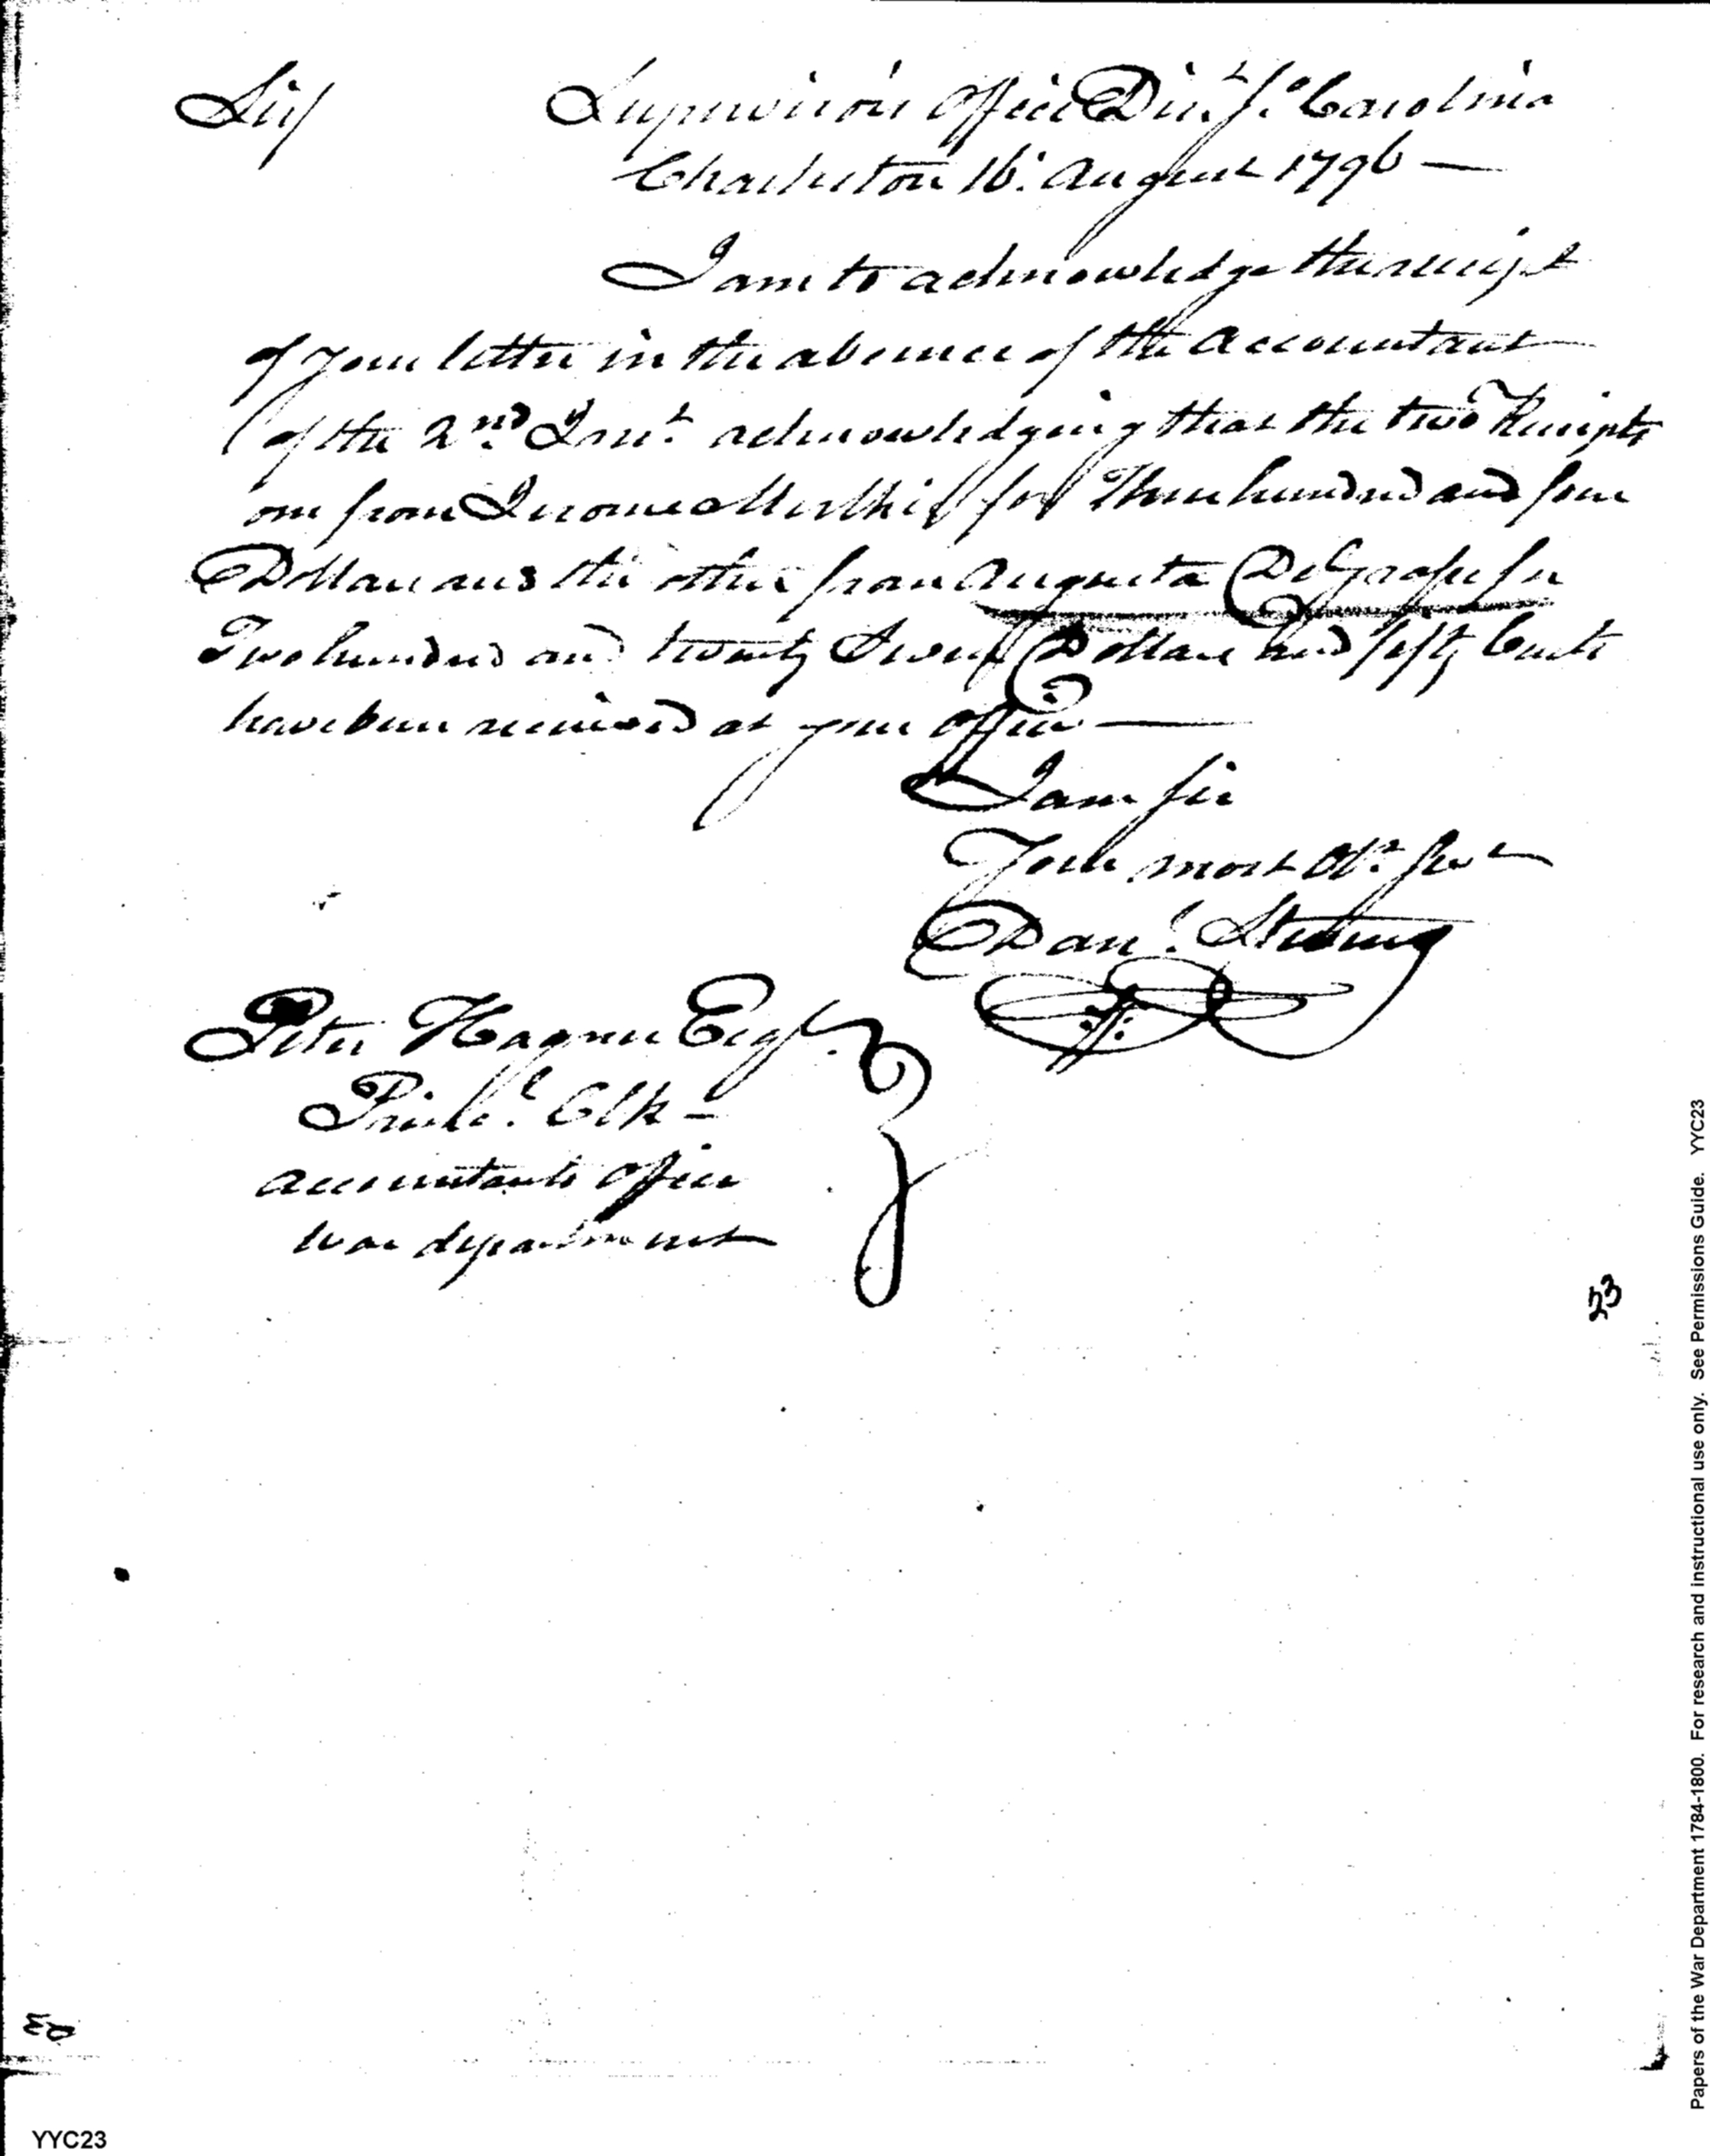 Sir/
Supervisors Office Dist. So. Carolina
Charleston 16. August 1796 —
I am to acknowledge the receipt
of your letter in the absence of the Accountant
of the 2nd. Inst. acknowledging that the two Receipts
one from Jerome for Three hundred and four
Dollars and the other from Augusta DeGrasse for
Two hundred and twenty Seven Dollars and fifty Cents
have been received at your office —
I am Sir
Your most Ob. Sert
Danl. Stevens
Peter Hagner Esqr.
Princl. Clk —
Accountants Office
War department
23
23
YYC23
Papers of the War Department 1784-1800. For research and instructional use only. See Permissions Guide. YYC23